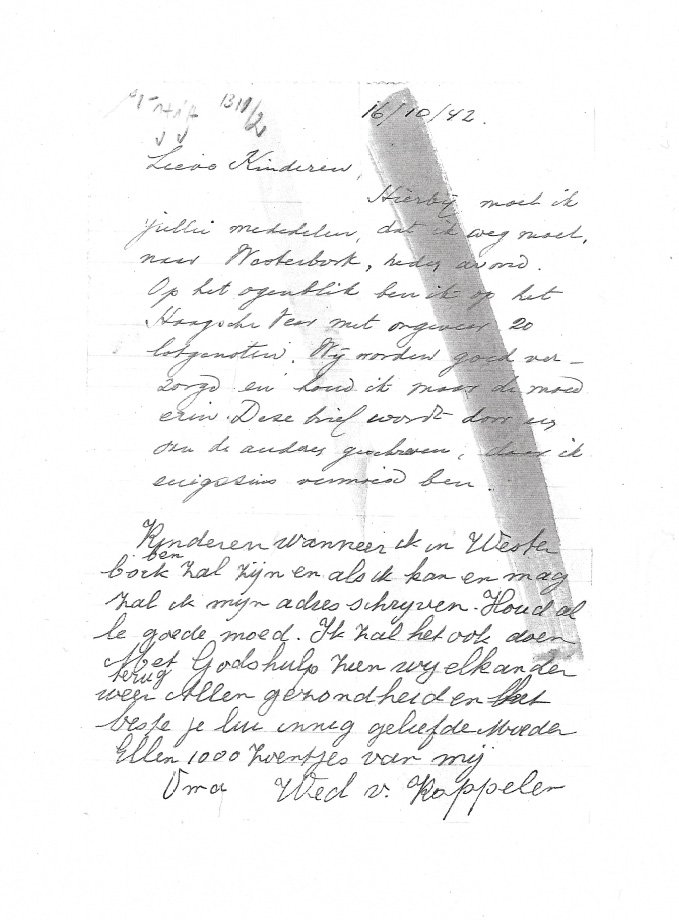 13 11/2
16/10/42.
Lieve Kinderen,
Hierbij moet ik
jullie mededelen, dat ik weg moet,
naar Westerbork, heden avond.
Op het ogenblik ben ik op het
Haagsche Veer met ongeveer 20
lotgenoten. Wij worden goed ver-
zorgd en houd ik maar de moed
erin. Deze brief wordt door
van de anderen geschreven, daar ik
enigszins vermoeid ben.
Kinderen wanneer ik in Weste
ben
bork zal zijn en als ik kan en mag
zal ik mijn adres schrijven. Houd al
le goede moed. Ik zal het ook doen
Met Godshulp zien wij elkander
terug
weer Allen gezondheid en het
beste je lui innig geliefde Moeder
Ellen 1000 zoentjes van mij
Oma Wed v. Kappelen